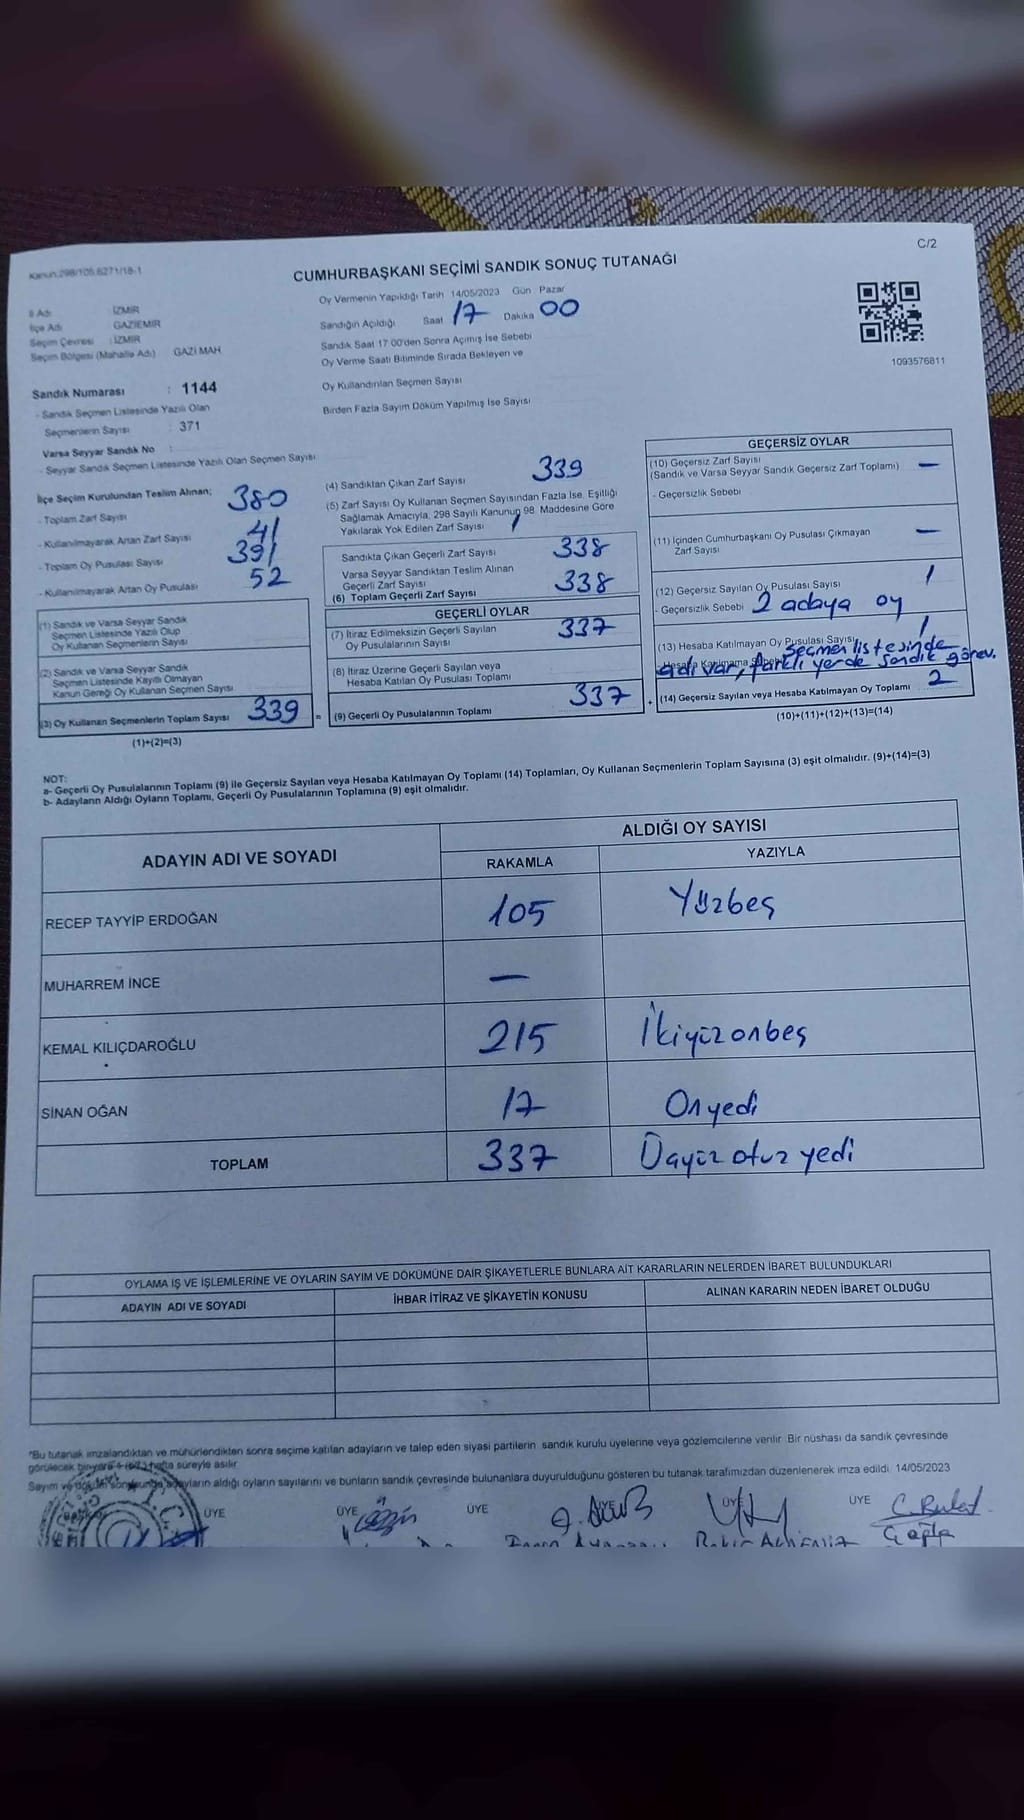 C/2
Kanun:298/105,6271/18-1
CUMHURBAŞKANI SEÇİMİ SANDIK SONUÇ TUTANAĞI
İl Adı İZMİR
İlçe Adı GAZİEMİR
Seçim Çevresi : İZMİR
Seçim Bölgesi (Mahalle Adı) GAZİ MAH
Oy Vermenin Yapıldığı Tarih 14/05/2023 Gün Pazar
Sandığın Açıldığı Saat 17 Dakika 00
Sandık Saat 17:00'den Sonra Açmış İse Sebebi
Oy Verme Saati Bitiminde Sırada Bekleyen ve
Oy Kullandırılan Seçmen Sayısı
Birden Fazla Sayım Döküm Yapılmış İse Sayısı
1093576811
Sandık Numarası : 1144
- Sandık Seçmen Listesinde Yazılı Olan
Seçmenlerin Sayısı : 371
Varsa Seyyar Sandık No :
- Seyyar Sandık Seçmen Listesinde Yazılı Olan Seçmen Sayısı
İlçe Seçim Kurulundan Teslim Alınan;
- Toplam Zarf Sayısı 380
- Kullanılmayarak Artan Zarf Sayısı 41
- Toplam Oy Pusulası Sayısı 391
- Kullanılmayarak Artan Oy Pusulası 52
(1) Sandık ve Varsa Seyyar Sandık
Seçmen Listesinde Yazılı Olup
Oy Kullanan Seçmenlerin Sayısı
(2) Sandık ve Varsa Seyyar Sandık
Seçmen Listesinde Kayıtlı Olmayan
Kanun Gereği Oy Kullanan Seçmen Sayısı
(3) Oy Kullanan Seçmenlerin Toplam Sayısı 339 =
(1)+(2)=(3)
(4) Sandıktan Çıkan Zarf Sayısı 339
(5) Zarf Sayısı Oy Kullanan Seçmen Sayısından Fazla İse, Eşitliği
Sağlamak Amacıyla, 298 Sayılı Kanunun 98. Maddesine Göre
Yakılarak Yok Edilen Zarf Sayısı 1
Sandıkta Çıkan Geçerli Zarf Sayısı 338
Varsa Seyyar Sandıktan Teslim Alınan
Geçerli Zarf Sayısı
(6) Toplam Geçerli Zarf Sayısı 338
GEÇERLİ OYLAR
(7) İtiraz Edilmeksizin Geçerli Sayılan
Oy Pusulalarının Sayısı 337
(8) İtiraz Üzerine Geçerli Sayılan veya
Hesaba Katılan Oy Pusulası Toplamı
(9) Geçerli Oy Pusulalarının Toplamı 337 +
GEÇERSİZ OYLAR
(10) Geçersiz Zarf Sayısı
(Sandık ve Varsa Seyyar Sandık Geçersiz Zarf Toplamı) —
- Geçersizlik Sebebi
(11) İçinden Cumhurbaşkanı Oy Pusulası Çıkmayan
Zarf Sayısı —
(12) Geçersiz Sayılan Oy Pusulası Sayısı 1
- Geçersizlik Sebebi 2 adaya oy
(13) Hesaba Katılmayan Oy Pusulası Sayısı 1
- Hesaba Katılmama Sebebi seçmen listesinde
adı var, farklı yerde sandık görev.
(14) Geçersiz Sayılan veya Hesaba Katılmayan Oy Toplamı 2
(10)+(11)+(12)+(13)=(14)
NOT:
a- Geçerli Oy Pusulalarının Toplamı (9) ile Geçersiz Sayılan veya Hesaba Katılmayan Oy Toplamı (14) Toplamları, Oy Kullanan Seçmenlerin Toplam Sayısına (3) eşit olmalıdır. (9)+(14)=(3)
b- Adayların Aldığı Oyların Toplamı, Geçerli Oy Pusulalarının Toplamına (9) eşit olmalıdır.
ADAYIN ADI VE SOYADI
ALDIĞI OY SAYISI
RAKAMLA YAZIYLA
RECEP TAYYİP ERDOĞAN 105 Yüzbeş
MUHARREM İNCE —
KEMAL KILIÇDAROĞLU 215 İkiyüzonbeş
SİNAN OĞAN 17 Onyedi
TOPLAM 337 Üçyüz otuz yedi
OYLAMA İŞ VE İŞLEMLERİNE VE OYLARIN SAYIM VE DÖKÜMÜNE DAİR ŞİKAYETLERLE BUNLARA AİT KARARLARIN NELERDEN İBARET BULUNDUKLARI
ADAYIN ADI VE SOYADI İHBAR İTİRAZ VE ŞİKAYETİN KONUSU ALINAN KARARIN NEDEN İBARET OLDUĞU
*Bu tutanak imzalandıktan ve mühürlendikten sonra seçime katılan adayların ve talep eden siyasi partilerin sandık kurulu üyelerine veya gözlemcilerine verilir. Bir nüshası da sandık çevresinde
görülecek bir yere hafta süreyle asılır.
Sayım ve döküm sonucunda adayların aldığı oyların sayılarını ve bunların sandık çevresinde bulunanlara duyurulduğunu gösteren bu tutanak tarafımızdan düzenlenerek imza edildi. 14/05/2023
ÜYE ÜYE ÜYE ÜYE ÜYE ÜYE
T.C.